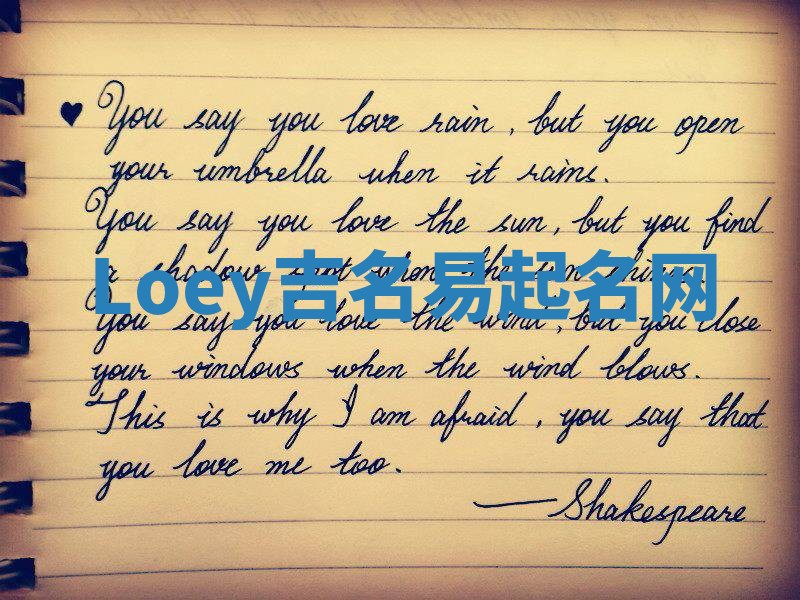 ♥ You say you love rain, but you open
your umbrella when it rains.
You say you love the sun, but you find
a shadow spot when the sun shines.
Loey吉名易起名网
You say you love the wind, but you close
your windows when the wind blows.
This is why I am afraid, you say that
you love me too.
—Shakespeare